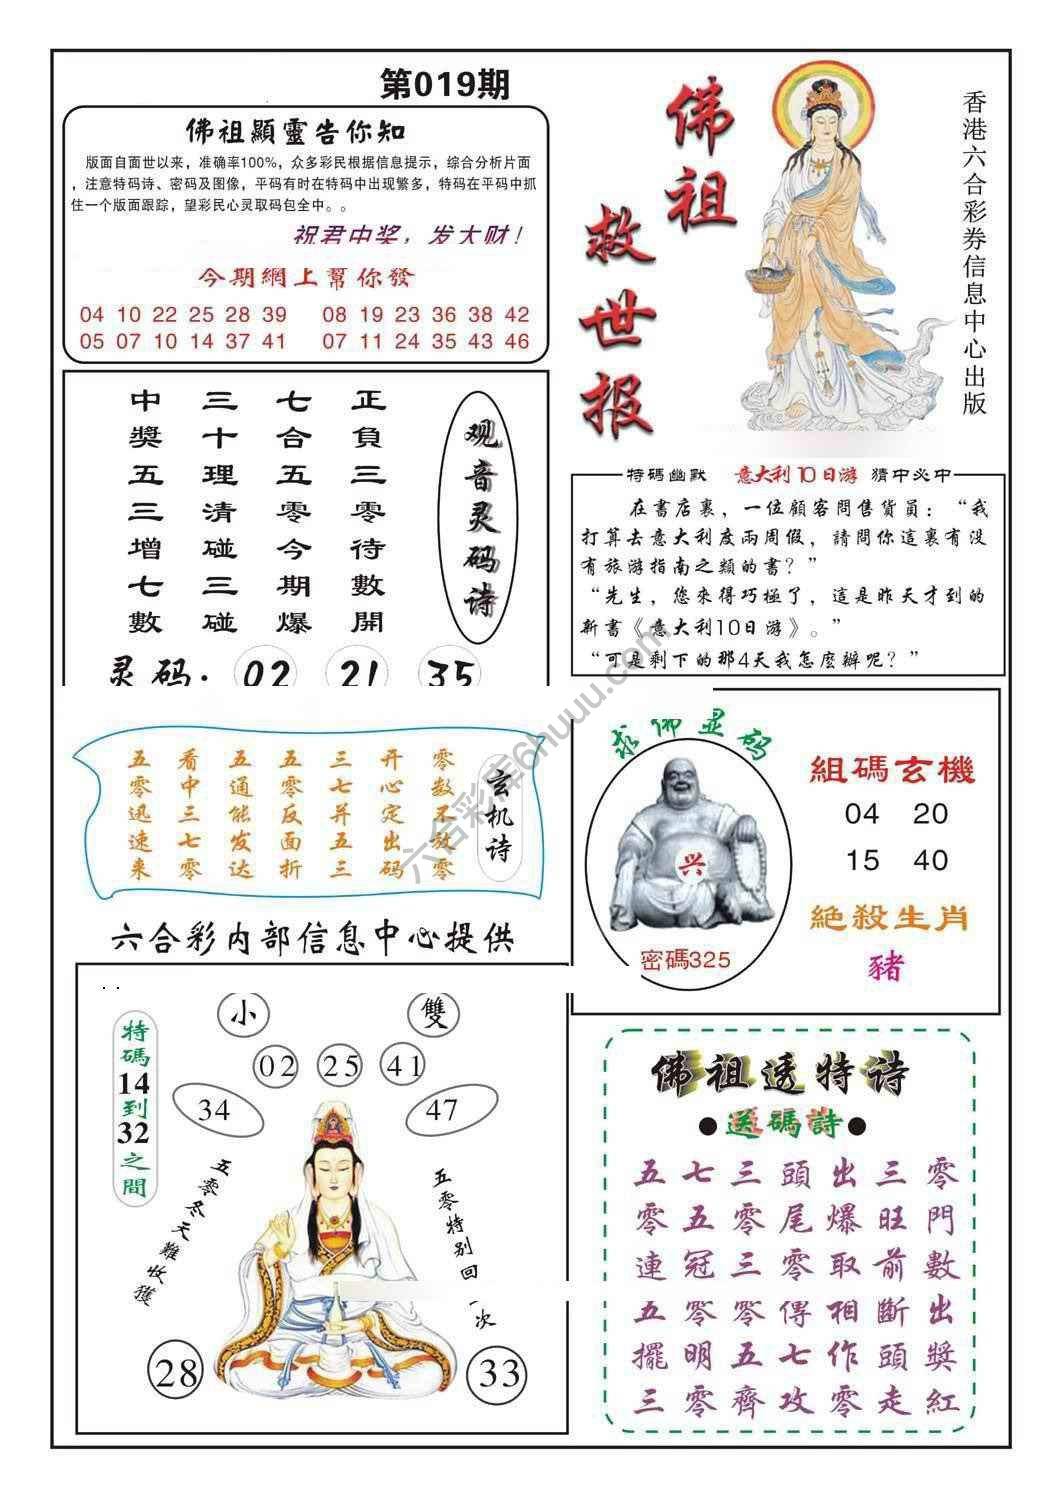 第019期
佛祖顯靈告你知
版面自面世以来，准确率100%，众多彩民根据信息提示，综合分析片面
，注意特码诗、密码及图像，平码有时在特码中出现繁多，特码在平码中抓
住一个版面跟踪，望彩民心灵取码包全中。。
祝君中奖，发大财！
今期網上幫你發
04 10 22 25 28 39 08 19 23 36 38 42
05 07 10 14 37 41 07 11 24 35 43 46
佛祖救世报
香港六合彩券信息中心出版
观音灵码诗
正負三零待數開
七合五零今期爆
三十理清碰三碰
中獎五三增七數
灵码：02 21 35
特碼幽默 意大利10日游 猜中必中
在書店裏，一位顧客問售貨員：“我
打算去意大利度兩周假，請問你這裏有没
有旅游指南之類的書？”
“先生，您來得巧極了，這是昨天才到的
新書《意大利10日游》。”
“可是剩下的那4天我怎麽辦呢？”
玄机诗
零数不放零
开心定出码
三七并五三
五零反面折
五通能发达
看中三七零
五零迅速来
求佛显码
兴
密碼325
組碼玄機
04 20
15 40
絕殺生肖
豬
六合彩内部信息中心提供
特碼14到32之間
小 雙
02 25 41
34 47
五零冬天難收獲
五零特别回一次
28 33
佛祖透特诗
●送碼詩●
五七三頭出三零
零五零尾爆旺門
連冠三零取前數
五零零傳相斷出
擺明五七作頭獎
三零齊攻零走紅
六合彩库6huuu.com